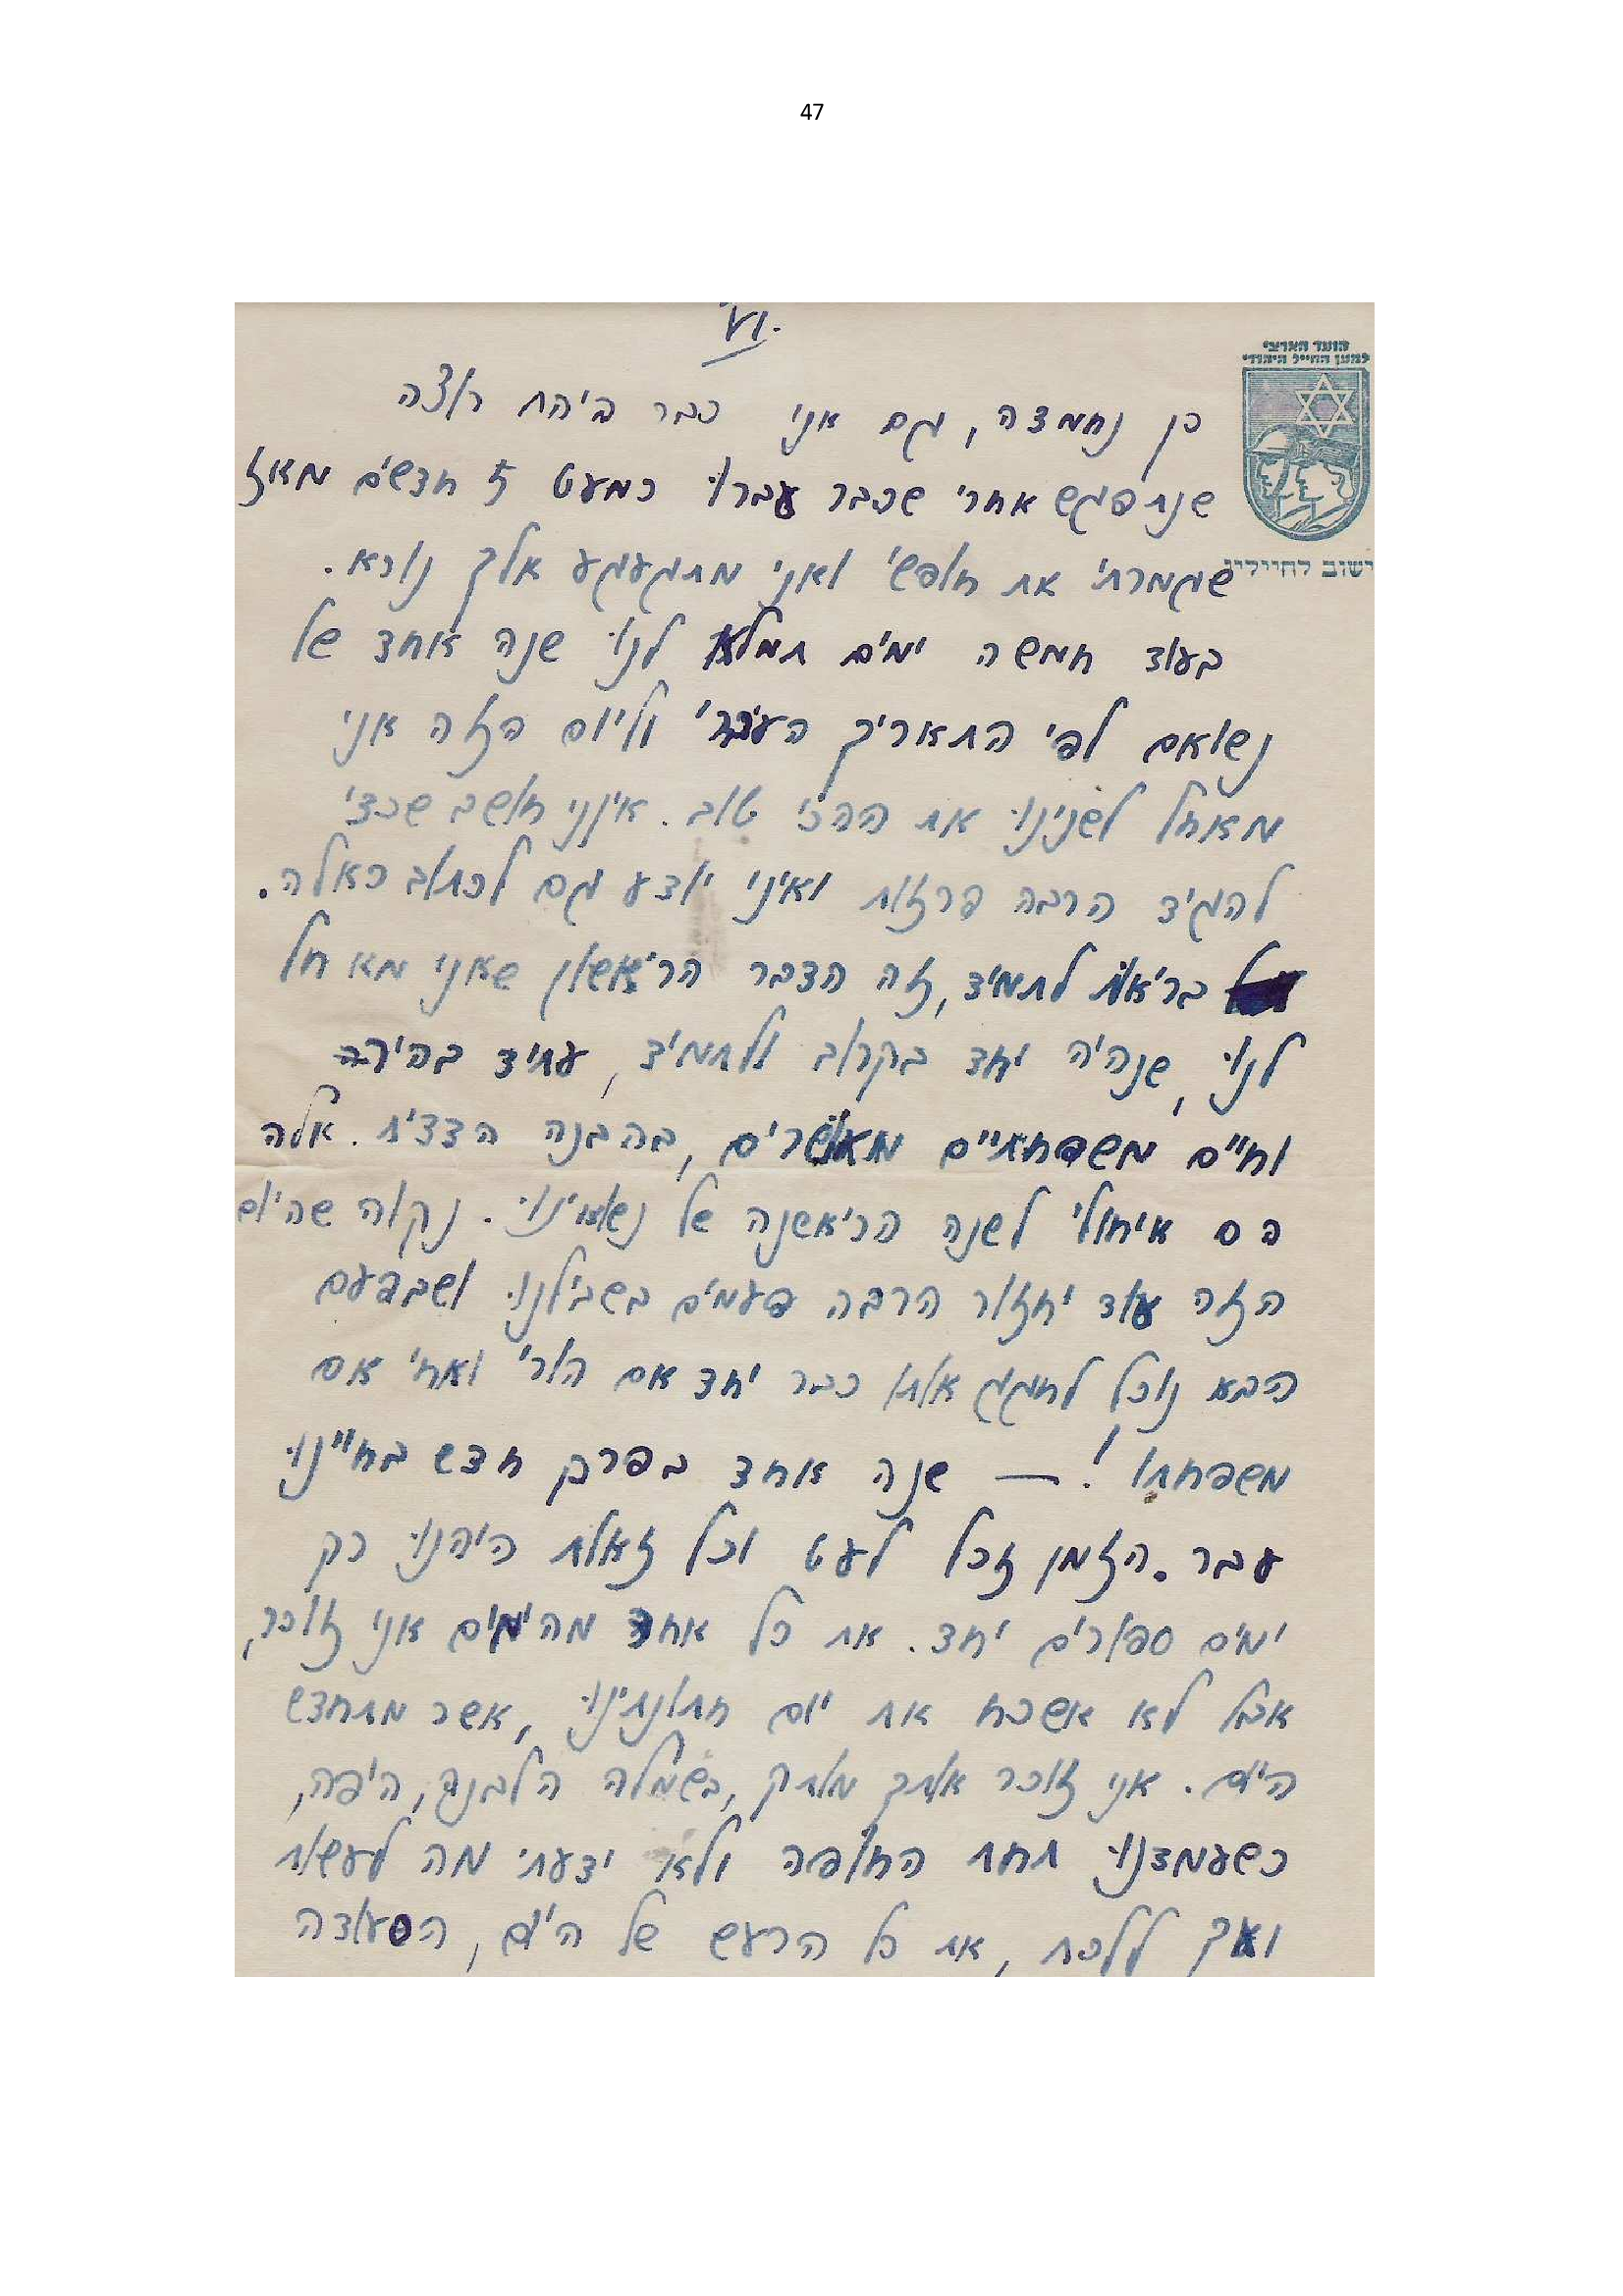 47
VI.
הועד הארצי
למען החייל היהודי
ישוב לחייליו
כן נחמדה, גם אני כבר ביהח רוצה
שנתפגש אחרי שכבר עברו כמעט 5 חדשים מאז
שגמרתי את חופשי ואני מתגעגע אלך נורא.
בעוד חמשה ימים תמלא לנו שנה אחד של
נשואם לפי התאריך העברי וליום הזה אני
מאחל לשנינו את ההכי טוב. אינני חושב שכדי
להגיד הרבה פרזות ואיני יודע גם לכתוב כאלה.
בריאות לתמיד, זה הדבר הריאשון שאני מאחל
לנו, שנהיה יחד בקרוב ולתמיד, עתיד בהירה
וחיים משפחתיים מאושרים, בהבנה הדדית. אלה
הם איחולי לשנה הריאשנה של נשואינו. נקוה שהיום
הזה עוד יחזור הרבה פעמים בשבילנו ושבפעם
הבא נוכל לחגג אותו כבר יחד אם הורי ואחי אם
משפחתו! — שנה אחד בפרק חדש בחיינו
עבר. הזמן זכל לעט וכל זאלת היהנו רק
ימים ספורים יחד. את כל אחד מהימים אני זוכר,
אבל לא אשכח את יום חתונתינו, אשר מתחדש
היום. אני זוכר אותך מותק, בשמלה הלבנה, היפה,
כשעמדנו תחת החופה ולא ידעתי מה לעשות
ואך ללכת, את כל הרעש של היום, הסעודה